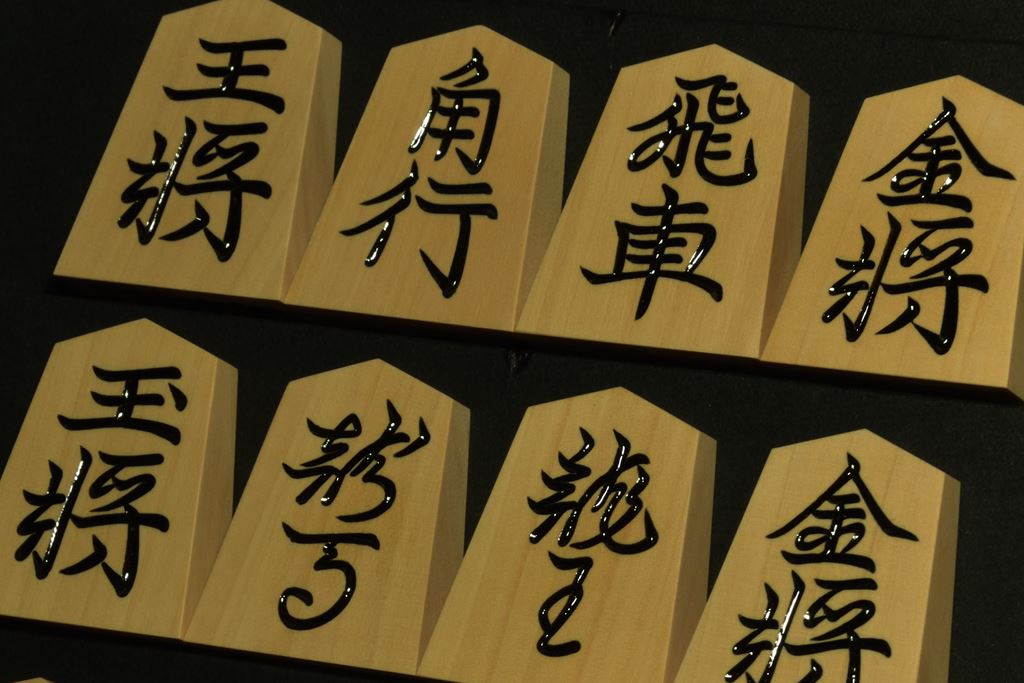 王將
角行
飛車
金將
玉將
龍馬
龍王
金將